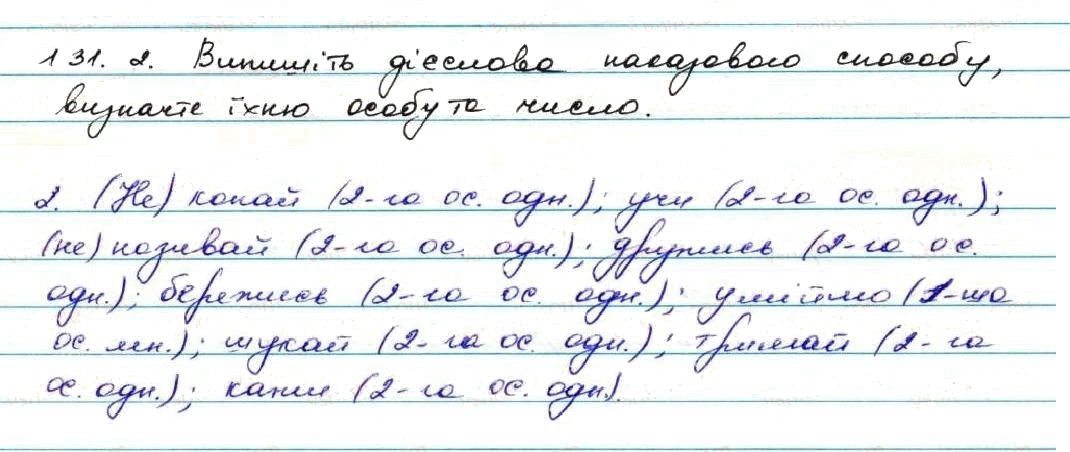 131. 2. Випишіть дієслова наказового способу,
визначте їхню особу та число.
2. (Не) копай (2-га ос. одн.); учи (2-га ос. одн.);
(не) називай (2-га ос. одн.); дружись (2-га ос.
одн.); бережись (2-га ос. одн.); уміймо (1-ша
ос. мн.); шукай (2-га ос. одн.); тримай (2-га
ос. одн.); кажи (2-га ос. одн.).